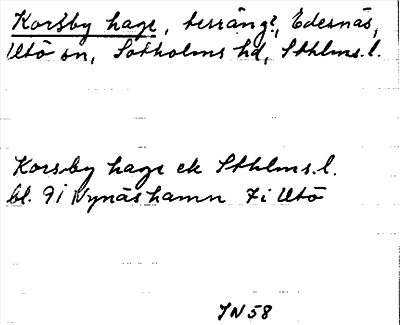 Korsby hage, terräng?, Edesnäs,
Utö sn, Sotholms hd, Sthlms.l.
Korsby hage ek Sthlms.l.
bl. 9i Nynäshamn 7i Utö
JN 58